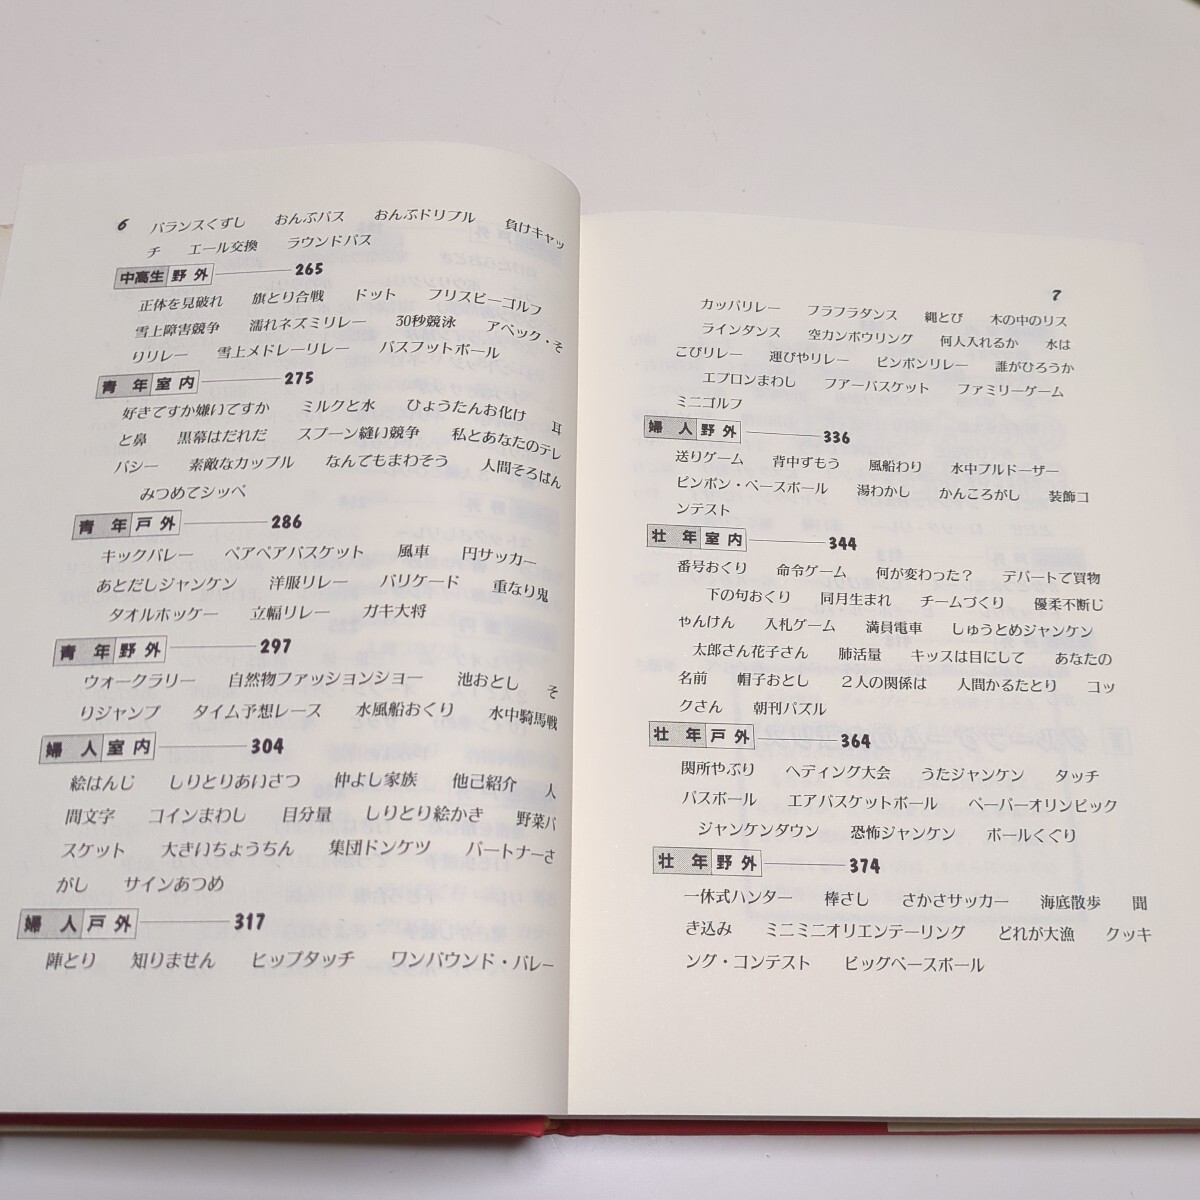 6
バランスくずし　おんぶパス　おんぶドリブル　負けキャッ
チ　エール交換　ラウンドパス
中高生 野外 265
正体を見破れ　旗とり合戦　ドット　フリスビーゴルフ
雪上障害競争　濡れネズミリレー　30秒競泳　アベック・そ
りリレー　雪上メドレーリレー　バスフットボール
青年 室内 275
好きですか嫌いですか　ミルクと水　ひょうたんお化け　耳
と鼻　黒幕はだれだ　スプーン縫い競争　私とあなたのテレ
パシー　素敵なカップル　なんでもまわそう　人間そろばん
みつめてシッペ
青年 戸外 286
キックバレー　ペアペアバスケット　風車　円サッカー
あとだしジャンケン　洋服リレー　バリケード　重なり鬼
タオルホッケー　立幅リレー　ガキ大将
青年 野外 297
ウォークラリー　自然物ファッションショー　池おとし　そ
りジャンプ　タイム予想レース　水風船おくり　水中騎馬戦
婦人 室内 304
絵はんじ　しりとりあいさつ　仲よし家族　他己紹介　人
間文字　コインまわし　目分量　しりとり絵かき　野菜バ
スケット　大きいちょうちん　集団ドンケツ　パートナーさ
がし　サインあつめ
婦人 戸外 317
陣とり　知りません　ヒップタッチ　ワンバウンド・バレー
7
カッパリレー　フラフラダンス　縄とび　木の中のリス
ラインダンス　空カンボウリング　何人入れるか　水は
こびリレー　運びやリレー　ピンポンリレー　誰がひろうか
エプロンまわし　フアーバスケット　ファミリーゲーム
ミニゴルフ
婦人 野外 336
送りゲーム　背中ずもう　風船わり　水中ブルドーザー
ピンポン・ベースボール　湯わかし　かんころがし　装飾コ
ンテスト
壮年 室内 344
番号おくり　命令ゲーム　何が変わった？　デパートで買物
下の句おくり　同月生まれ　チームづくり　優柔不断じ
ゃんけん　入札ゲーム　満員電車　しゅうとめジャンケン
太郎さん花子さん　肺活量　キッスは目にして　あなたの
名前　帽子おとし　２人の関係は　人間かるたとり　コッ
クさん　朝刊パズル
壮年 戸外 364
関所やぶり　ヘディング大会　うたジャンケン　タッチ
バスボール　エアバスケットボール　ペーパーオリンピック
ジャンケンダウン　恐怖ジャンケン　ボールくぐり
壮年 野外 374
一休式ハンター　棒さし　さかさサッカー　海底散歩　聞
き込み　ミニミニオリエンテーリング　どれが大漁　クッキ
ング・コンテスト　ビッグベースボール